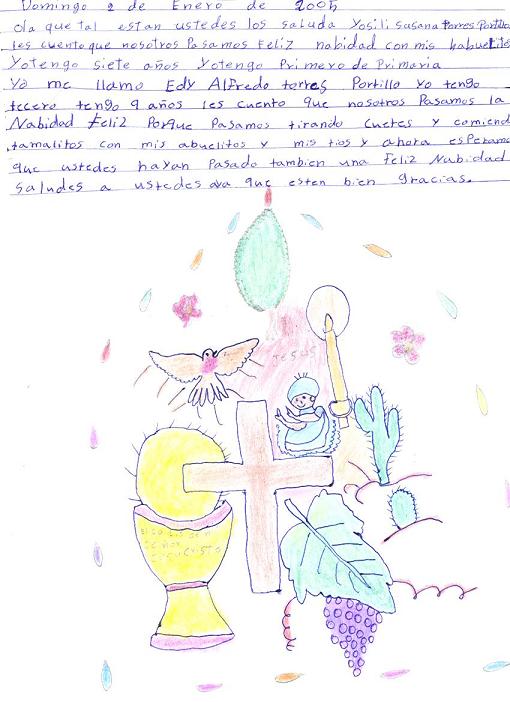 Domingo 2 de Enero de 2005
ola que tal estan ustedes los saluda Yosili Susana Torres Portillo
les cuento que nosotros Pasamos Feliz nabidad con mis habuelitos
Yotengo siete años Yotengo Primero de Primaria
Yo me llamo Edy Alfredo torres Portillo yo tengo
tecero tengo 9 años les cuento que nosotros Pasamos la
Nabidad Feliz Porque Pasamos tirando cuetes y comiend
tamalitos con mis abuelitos y mis tios y ahora esperamo
que ustedes hayan Pasado tambien una Feliz Nabidad
saludes a ustedes que esten bien gracias.
JESUS
SEÑOR
JESUCRISTO